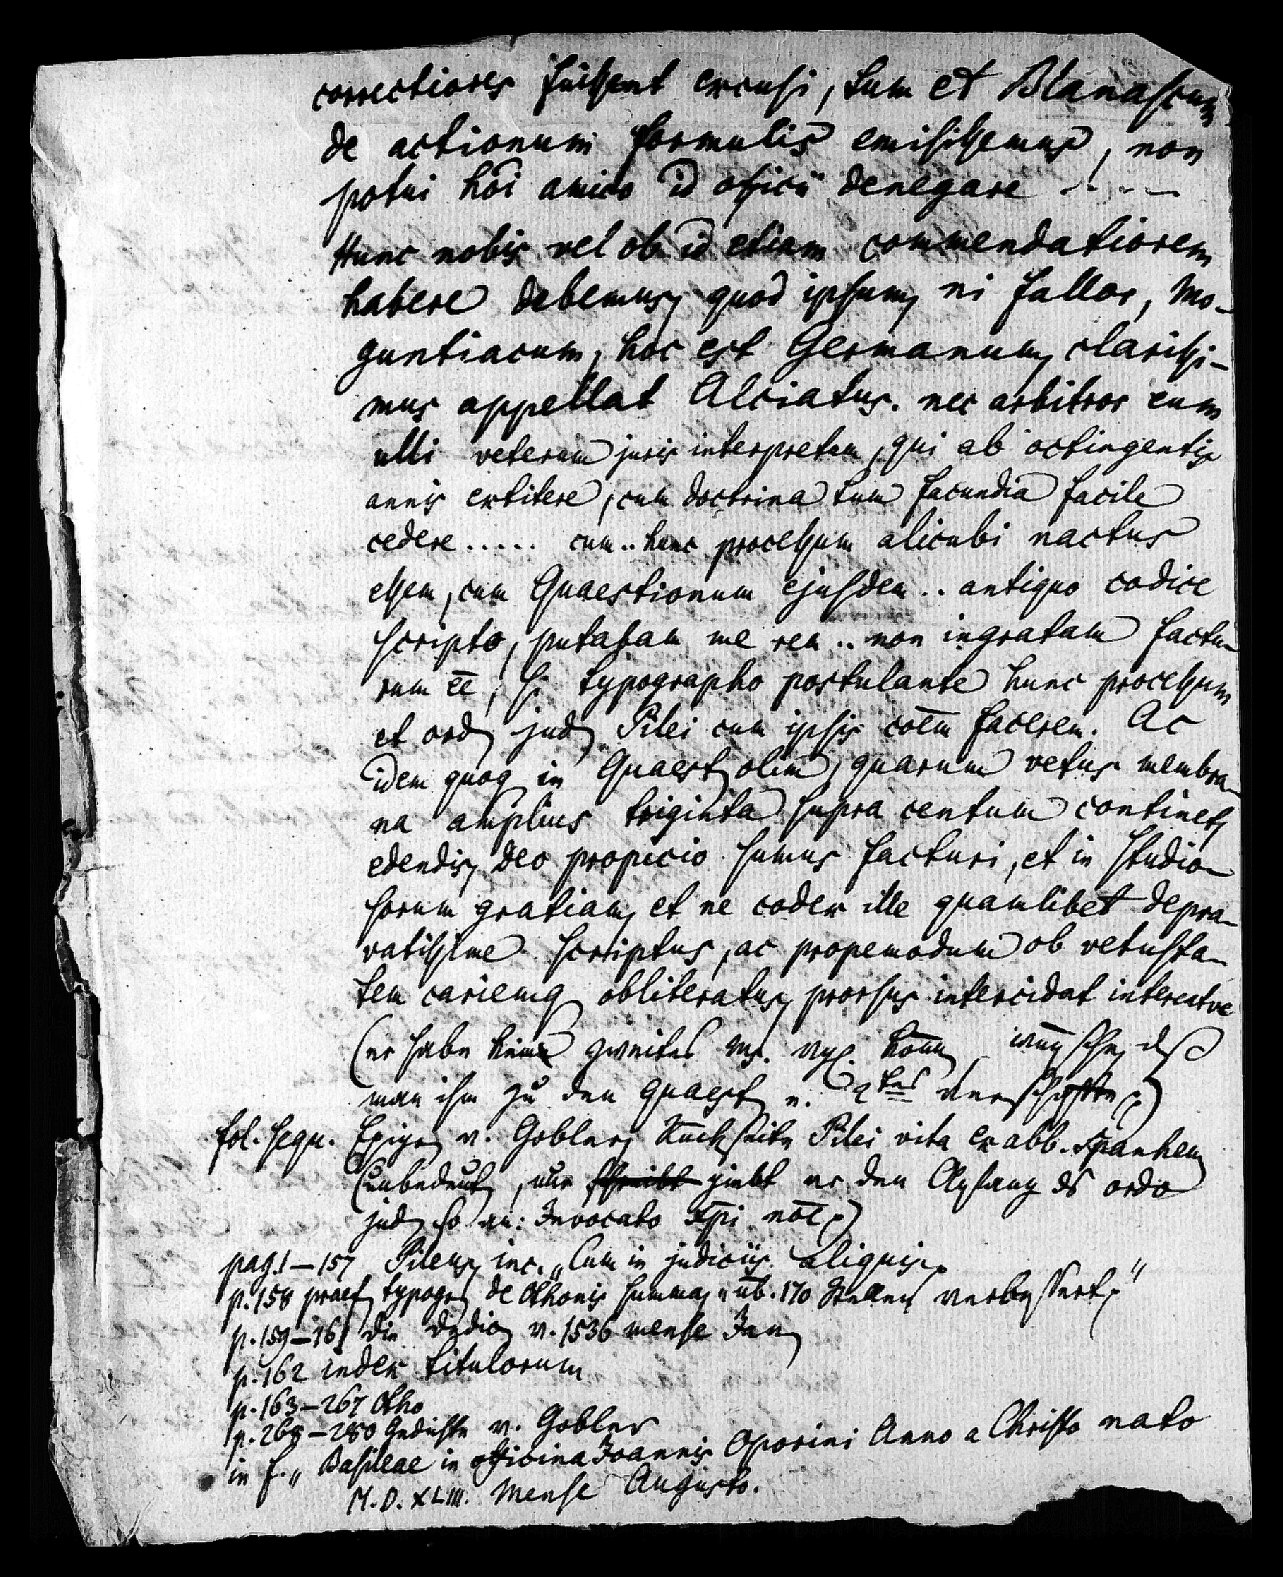 correctiores fuissent excusi, tum et Blanascum
de actionum formulis emisissemus, non
potui hoi amico id officii denegare - - - -
Hunc nobis vel ob id etiam commendatiorem
habere debemus, quod ipsum, ni fallor, Mo-
guntiacum, hoc est Germanum, clarissi-
mus appellat Alciatus. nec arbitror eum
ulli veterum juris interpretum, qui ab octingentis
annis extitere, cum doctrina tum facundia facile
cedere ..... cum .. hunc processum alicubi nactus
essem, cum Quaestionum ejusdem .. antiquo codice
scripto, putabam me rem .. non ingratam factu-
rum ēē, si typographo postulante hunc processum
et ord. jud. Pilei cum ipsis cōem facerem. Ac
idem quoq in Quaest. olim, quarum vetus membra-
na amplius triginta supra centum continet,
edendis, deo propicio sumus facturi, et in studio-
sorum gratiam, et ne codex ille quamlibet depra-
vatissime scriptus, ac propemodum ob vetusta-
tem cariemq obliteratus, prorsus intercidat intereatve
(er habe keine zweites Ms. wünsche, dß
man ihm zu den Quaest. 2tes verschaffe)
fol. sequ. Epigr. v. Gobler, Rückseite Pilei vita ex abb. Spanhem.
(unbedeut., nur schreibt giebt er den Anfang ds ordo
jud. so an: Invocato Xpi noīe)
pag. 1 – 157 Pileus, inc. „Cum in judiciis aliquis
p. 158 praef. typogr. de Othonis summa, üb. 170 Stellen verbessert"
p. 159 – 161 die Dedic. v. 1536 mense Jan.
p. 162 index titulorum
p. 163 – 267 Otho
p. 268 – 280 Gedichte v. Gobler
in f. „Basileae in officina Joannis Oporini Anno a Christo nato
M. D. XLIII. Mense Augusto.